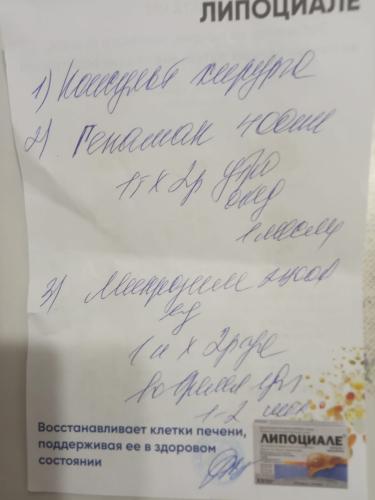 ЛИПОЦИАЛЕ
1) Консульт хирурга
2) Гепамак 400мг
1т х 2р утро
обед
1 месяц
3) Микразим
ед
1 к х 2 раза
во время еды
1-2 мес
Восстанавливает клетки печени,
поддерживая ее в здоровом
состоянии
ЛИПОЦИАЛЕ